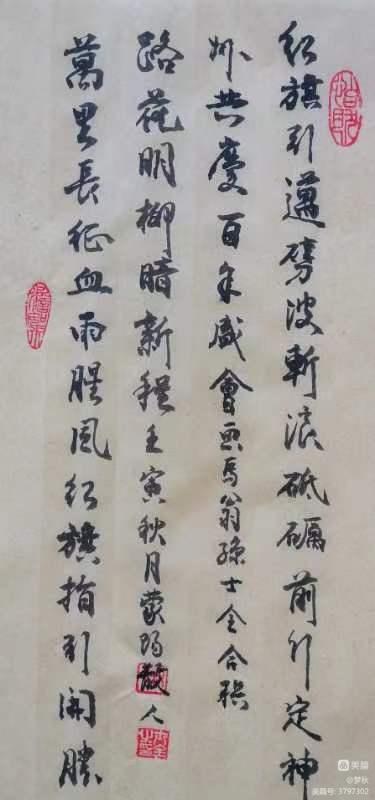 红旗引邁劈波斬浪砥礪前行定神
州共慶百年盛會 西馬翁孫士全合聯
萬里長征血雨腥風红旗指引開勝
路花明柳暗新程 壬寅秋月蒙阳散人
美篇
@梦秋
美篇号: 3797302